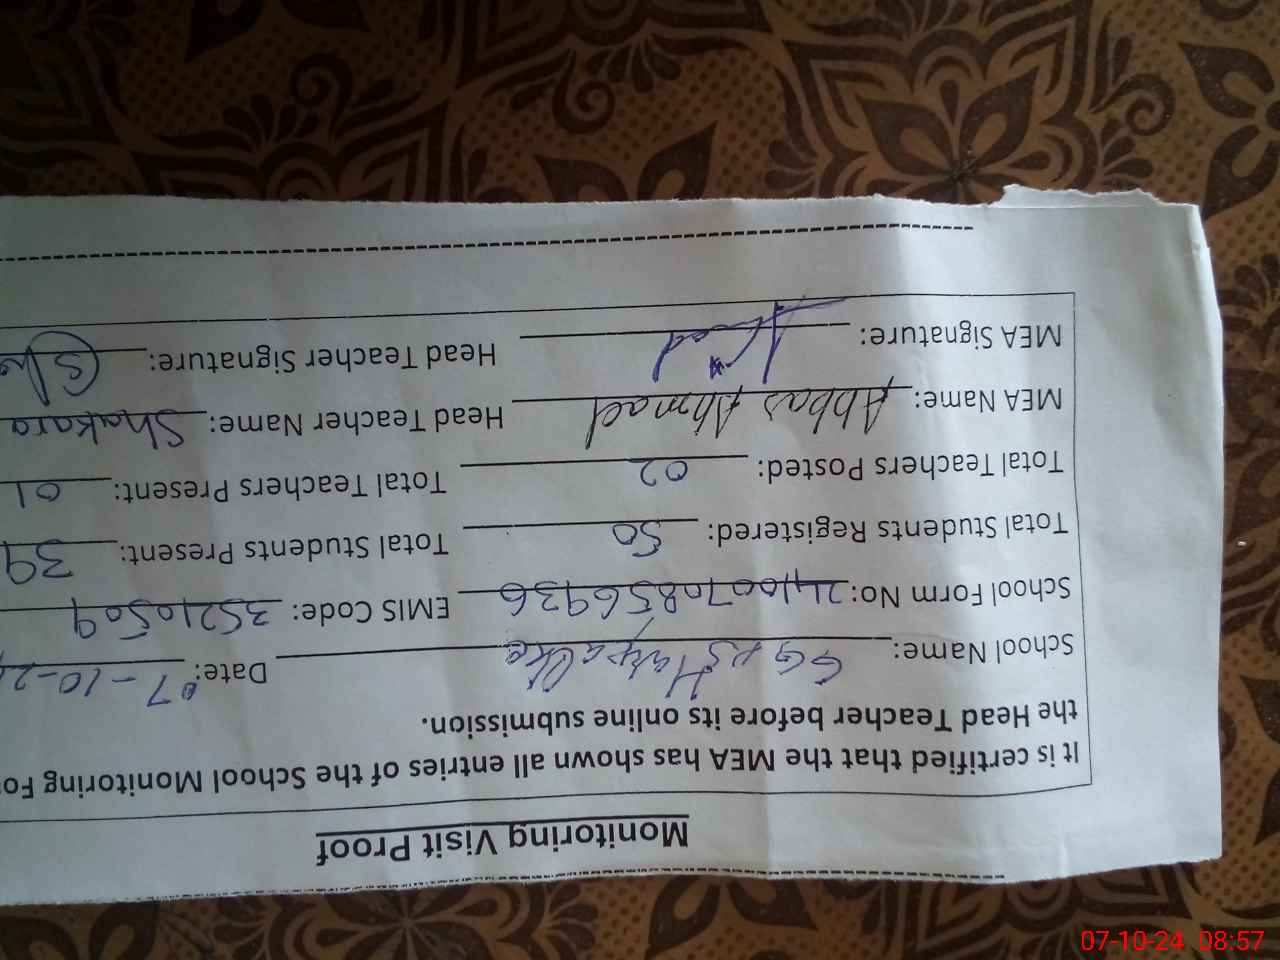 Monitoring Visit Proof
It is certified that the MEA has shown all entries of the School Monitoring Fo
the Head Teacher before its online submission.
School Name: GGPS Date: 07-10-2
School Form No: 2410070856936 EMIS Code: 35210509
Total Students Registered: 50 Total Students Present: 39
Total Teachers Posted: 02 Total Teachers Present: 01
MEA Name: Abbas Ahmad Head Teacher Name: Shakara
MEA Signature: Head Teacher Signature:
07-10-24 08:57